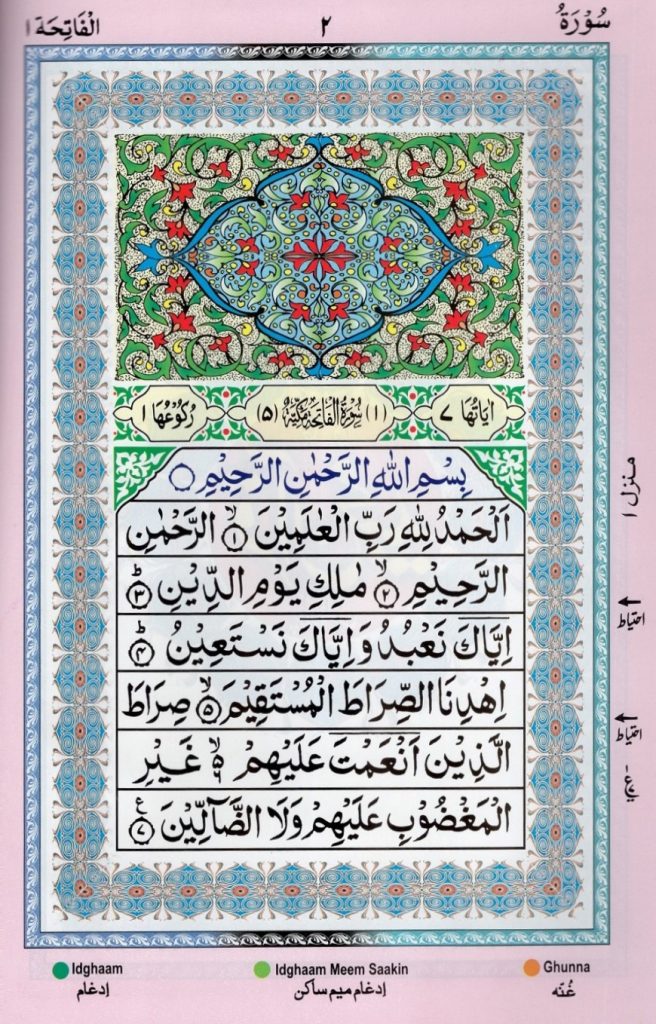 سُوْرَةُ ٢ الْفَاتِحَة ١
اٰيَاتُهَا ٧ (١) سُوْرَةُ الْفَاتِحَةِ مَكِّيَّةٌ (٥) رُكُوْعُهَا ١
بِسْمِ اللّٰهِ الرَّحْمٰنِ الرَّحِيْمِ ۝
اَلْحَمْدُ لِلّٰهِ رَبِّ الْعٰلَمِيْنَ ۙ‏﴿۱﴾ الرَّحْمٰنِ
الرَّحِيْمِ ۙ‏﴿۲﴾ مٰلِكِ يَوْمِ الدِّيْنِ ؕ‏﴿۳﴾
اِيَّاكَ نَعْبُدُ وَ اِيَّاكَ نَسْتَعِيْنُ ؕ‏﴿۴﴾
اِهْدِنَا الصِّرَاطَ الْمُسْتَقِيْمَ ۙ‏﴿۵﴾ صِرَاطَ
الَّذِيْنَ اَنْعَمْتَ عَلَيْهِمْ ۙ۬﴿۶﴾ غَيْرِ
الْمَغْضُوْبِ عَلَيْهِمْ وَلَا الضَّآلِّيْنَ ع﴿۷﴾
منزل ١
احتیاط
احتیاط
Idghaam
اِدغام
Idghaam Meem Saakin
اِدغام میم ساکن
Ghunna
غُنّه